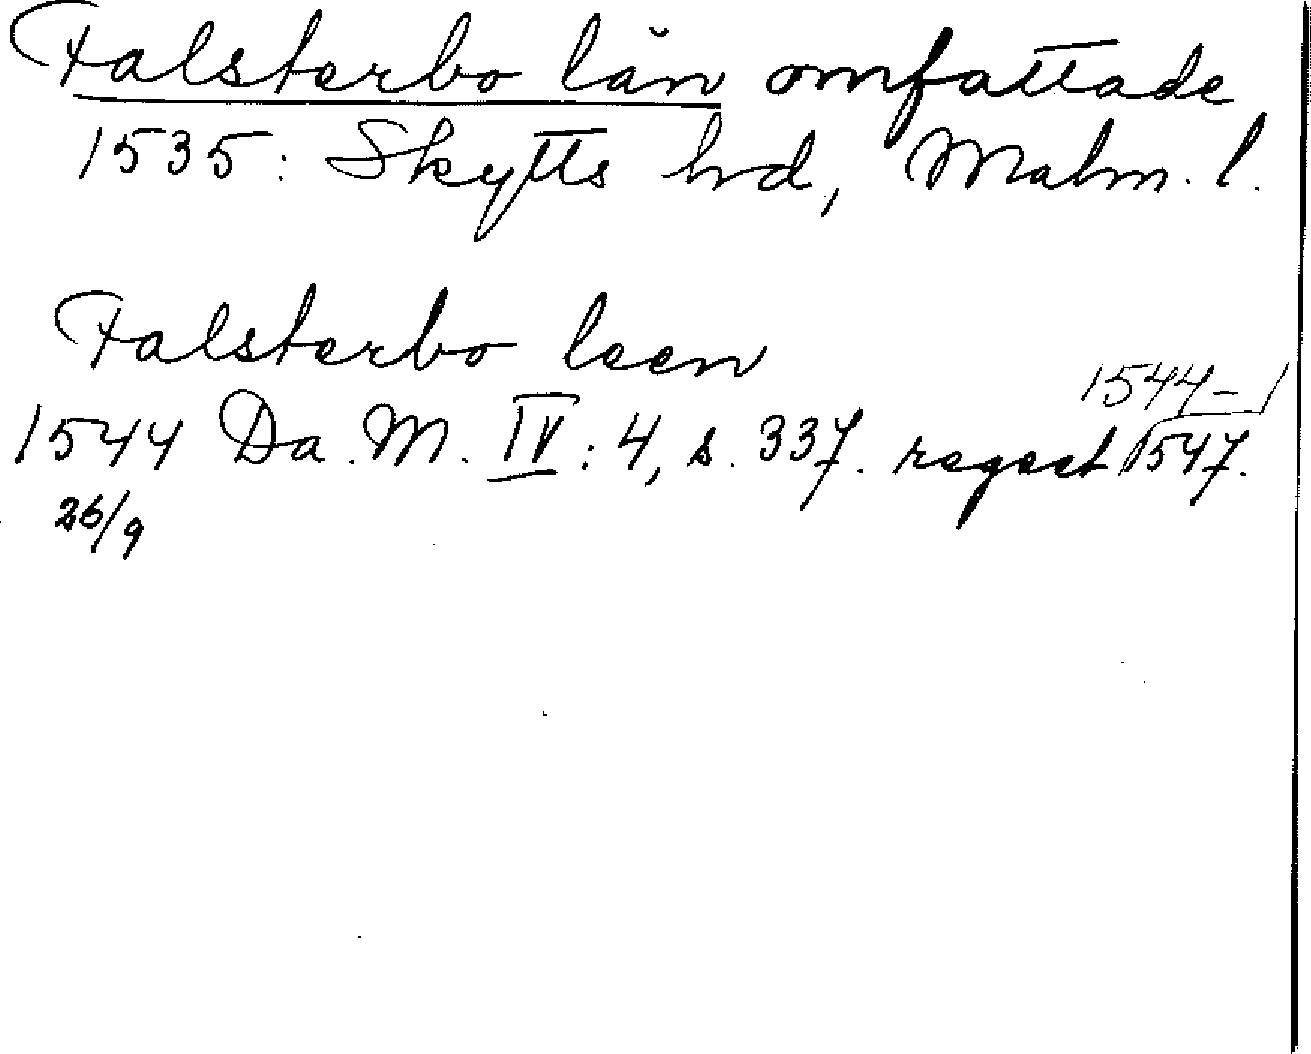 Falsterbo län omfattade
1535: Skytts hd, Malm. l.
Falsterbo leen
1544–
1544 Da. M. IV: 4, s. 337. regest 1547.
26/9